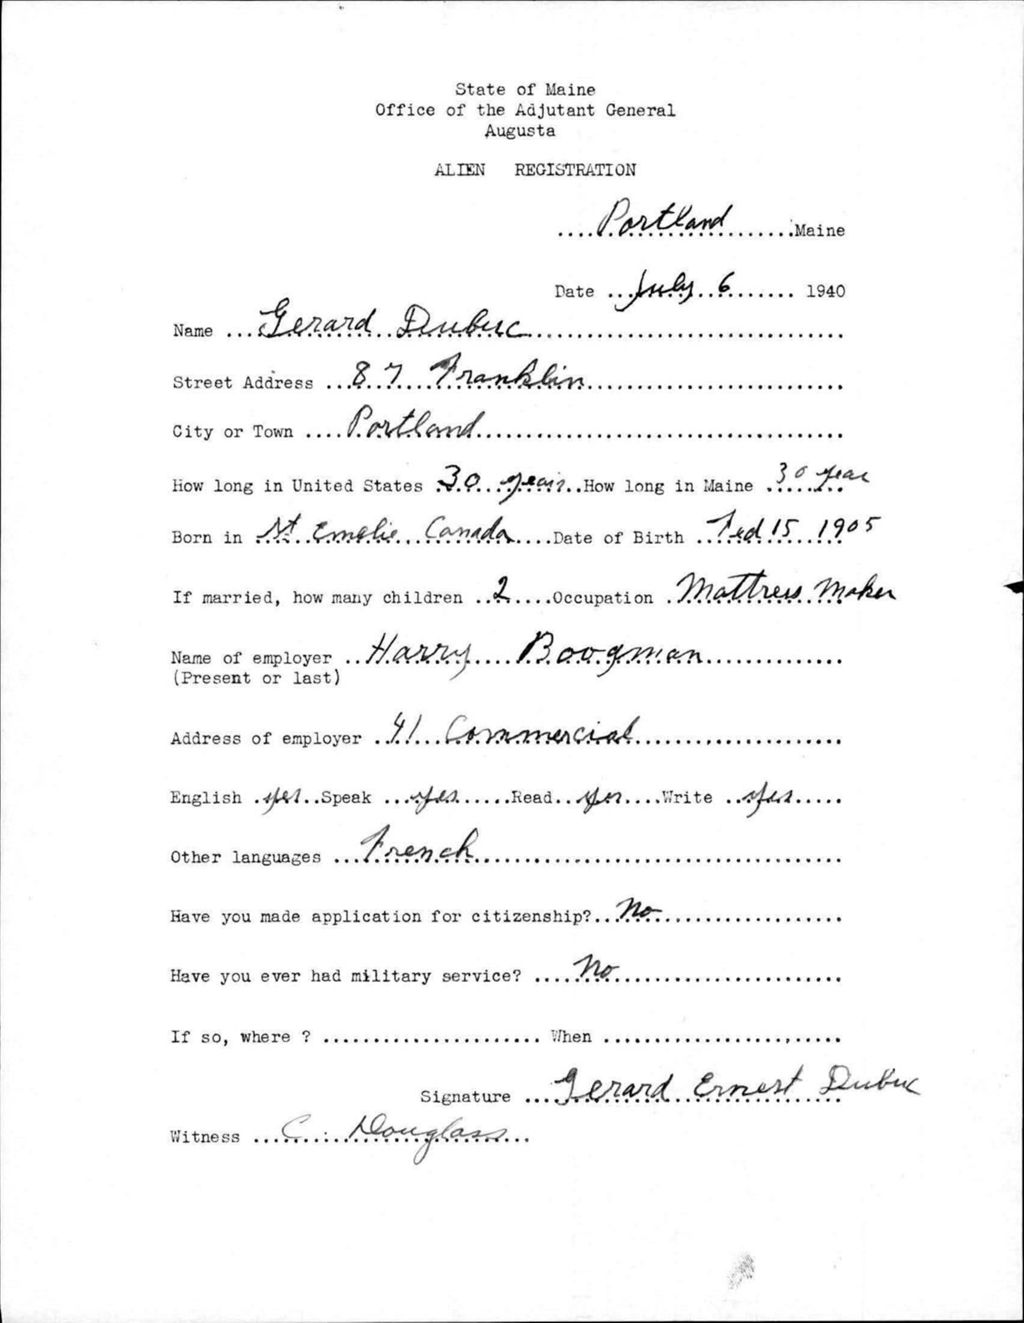 State of Maine
Office of the Adjutant General
Augusta
ALIEN REGISTRATION
....Portland.......Maine
Date ...July 6....... 1940
Name ...Gerard Dubuc..............................
Street Address ...87 Franklin..........................
City or Town ....Portland.....................................
How long in United States 30 years..How long in Maine 30 year
Born in St Emelie Canada....Date of Birth 15 1905
If married, how many children ..2....Occupation .Mattress Maker
Name of employer ..Harry Boogman..............
(Present or last)
Address of employer ..41 Commercial.....................
English .yes..Speak ...yes......Read..yes....Write ..yes.....
Other languages ...French.....................................
Have you made application for citizenship?..No...................
Have you ever had military service? ....No.......................
If so, where ? ...................... When ........................
Signature ...Gerard Ernest Dubuc
Witness ...C. Douglass...